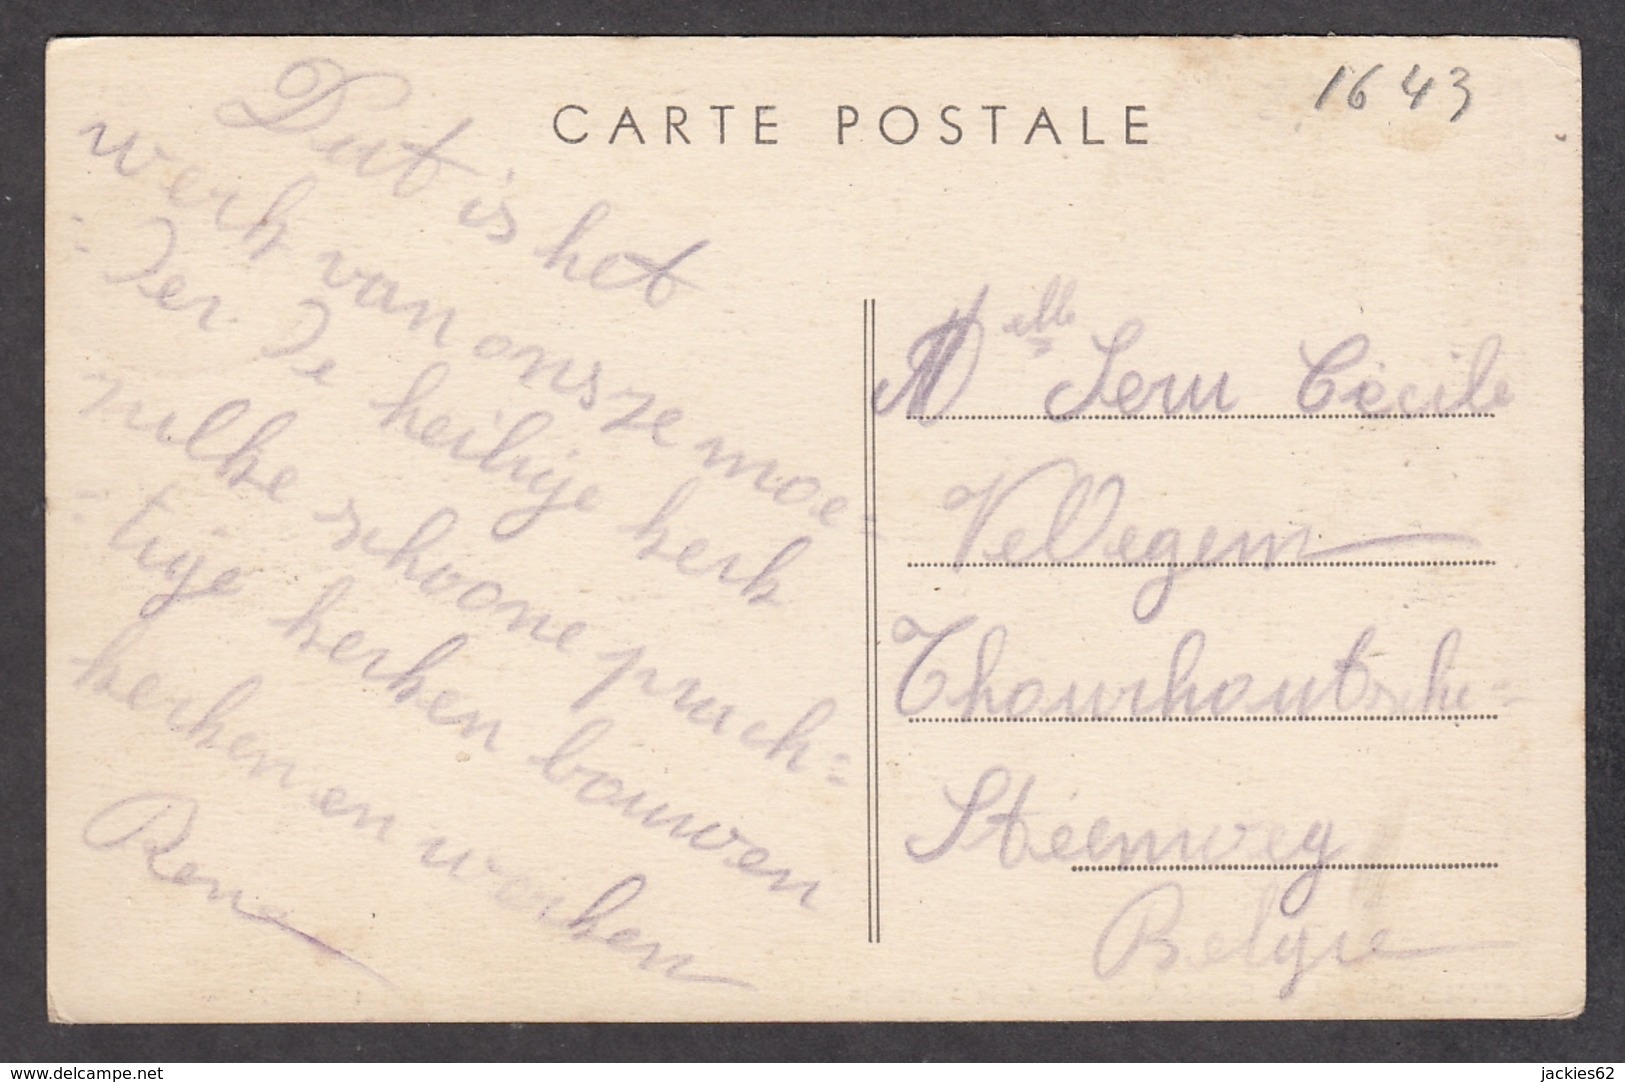 CARTE POSTALE
1643
Dit is het
werk van onsze moe=
=der de heilige kerk
zulke schoone prach=
=tige kerken bouwen
kerken en werken
Rene
Melle Seru Cécile
Veldegem
Thourhoutsche=
Steenweg
Belgie
www.delcampe.net
jackies62